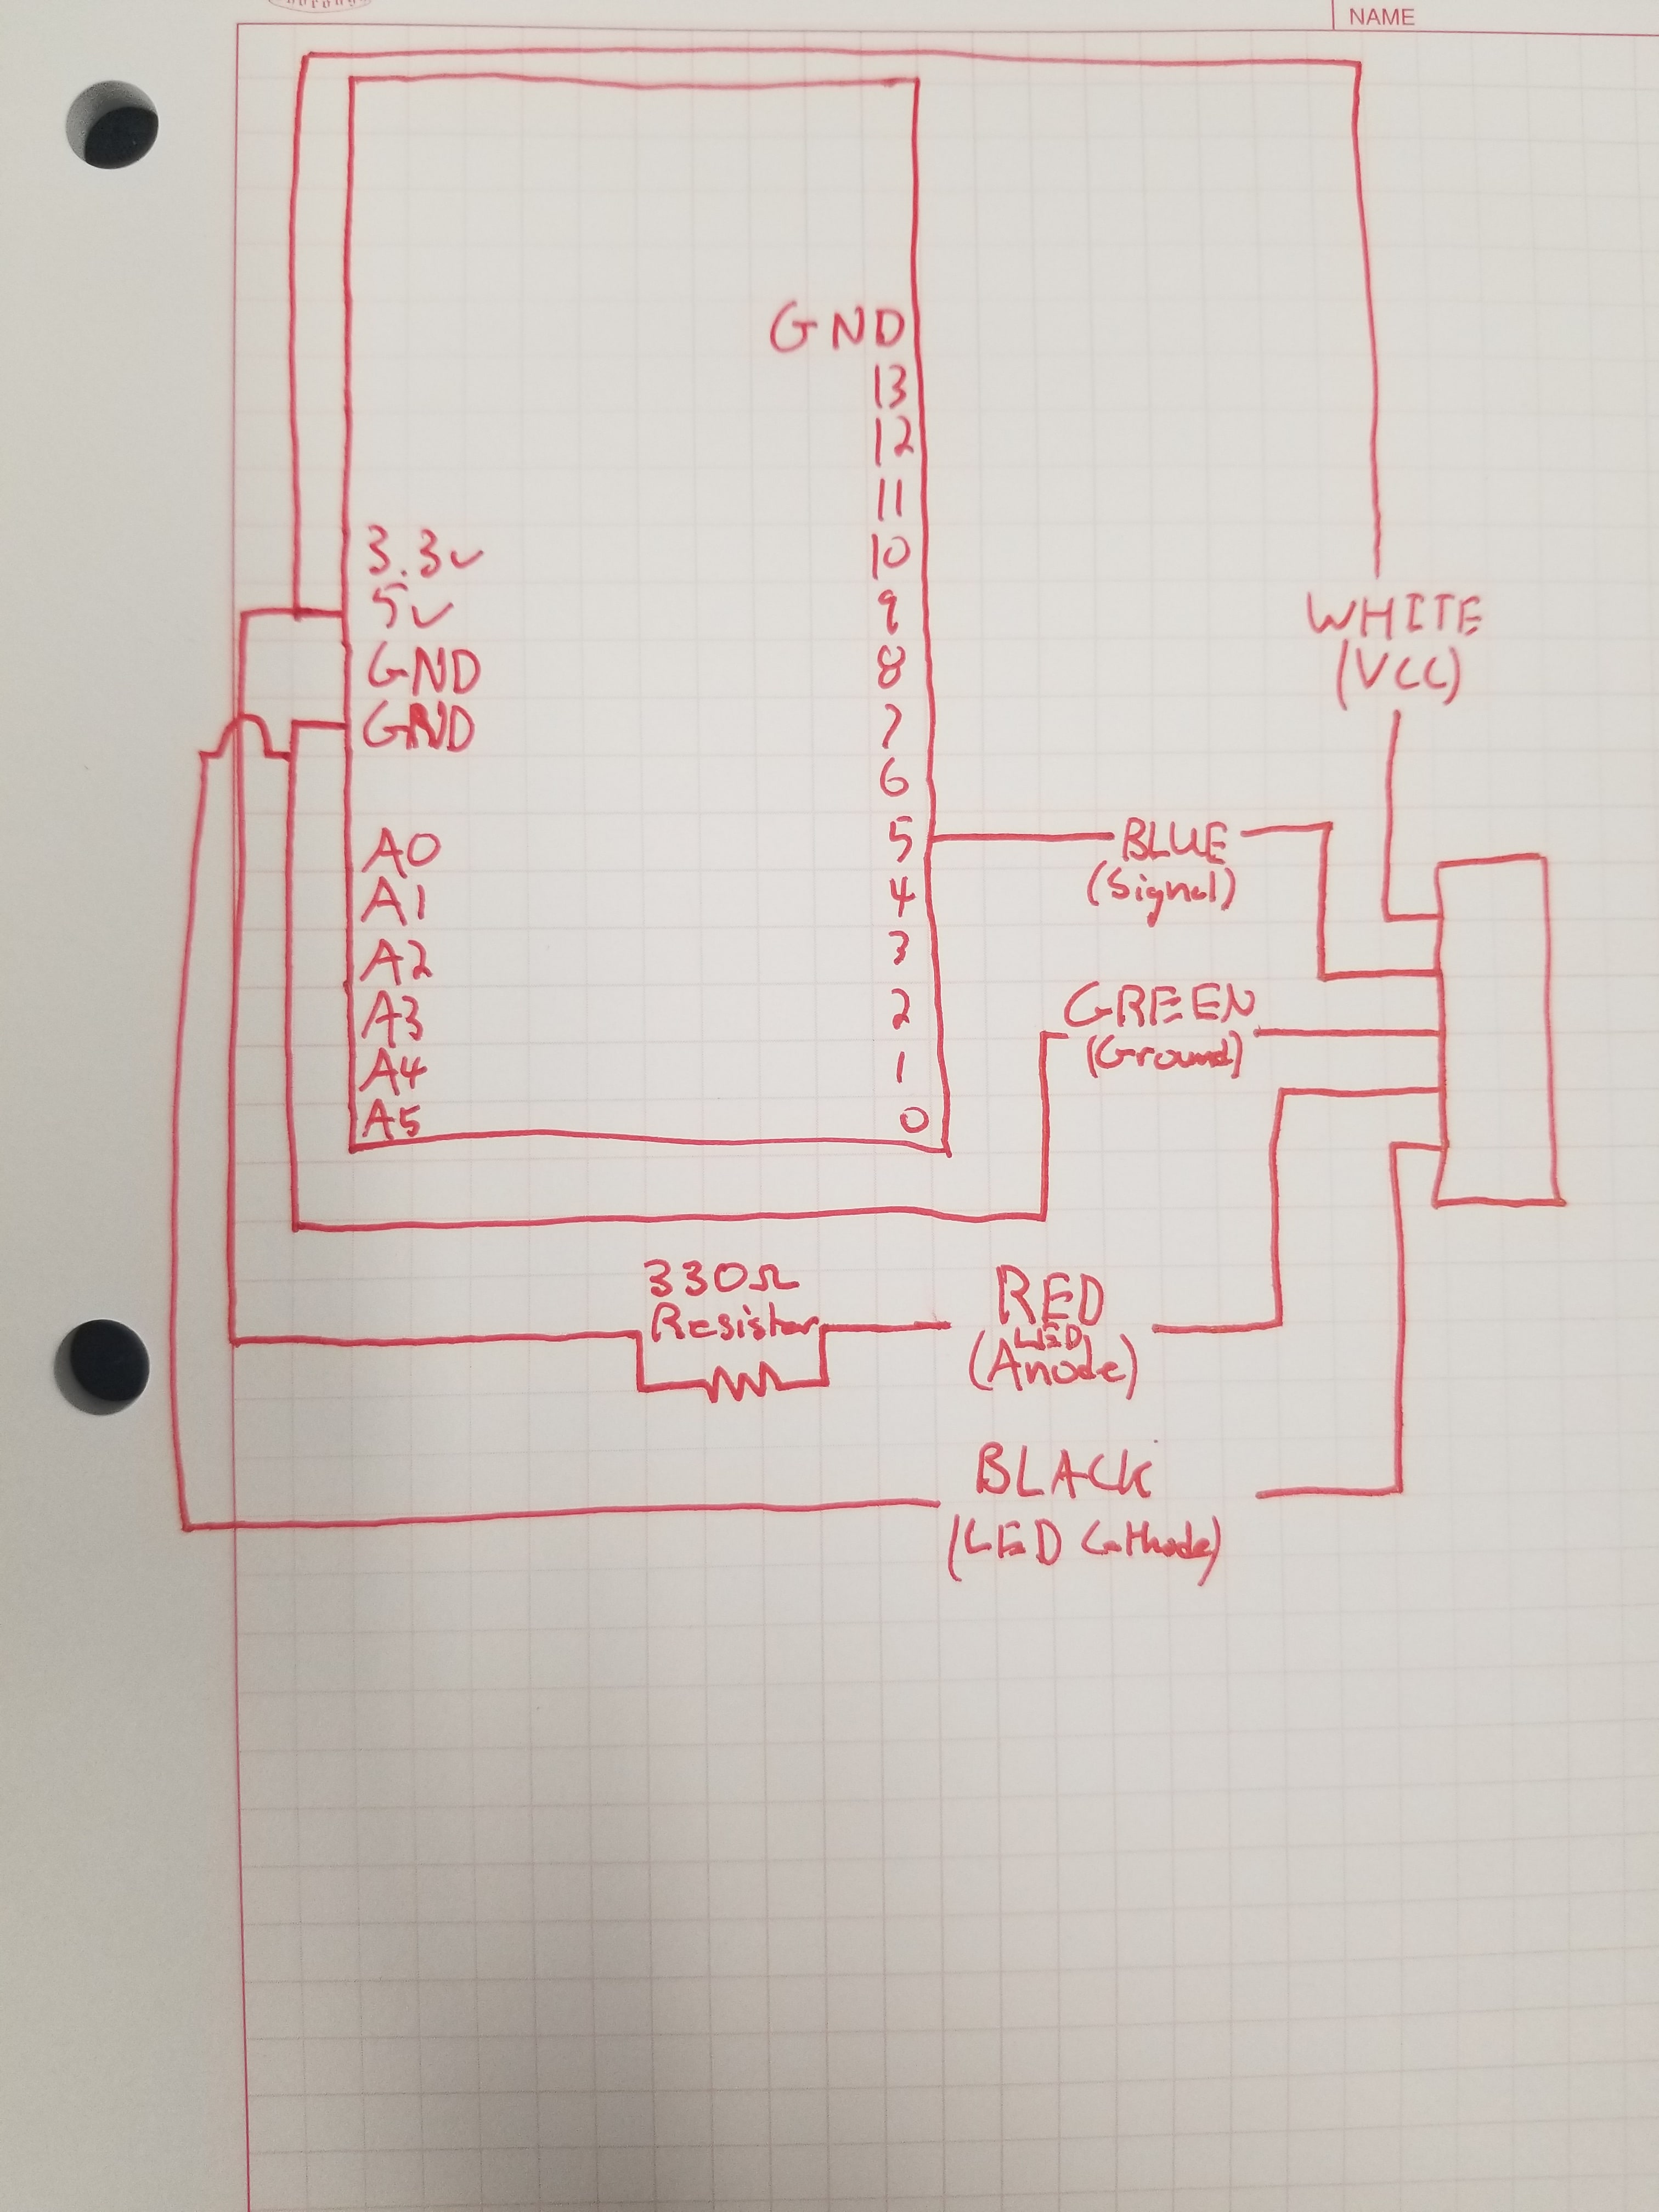 NAME
GND
13
12
11
10
9
8
7
6
5
4
3
2
1
0
3.3v
5v
GND
GND
A0
A1
A2
A3
A4
A5
WHITE
(VCC)
BLUE
(Signal)
GREEN
(Ground)
330Ω
Resistor
RED
LED
(Anode)
BLACK
(LED Cathode)